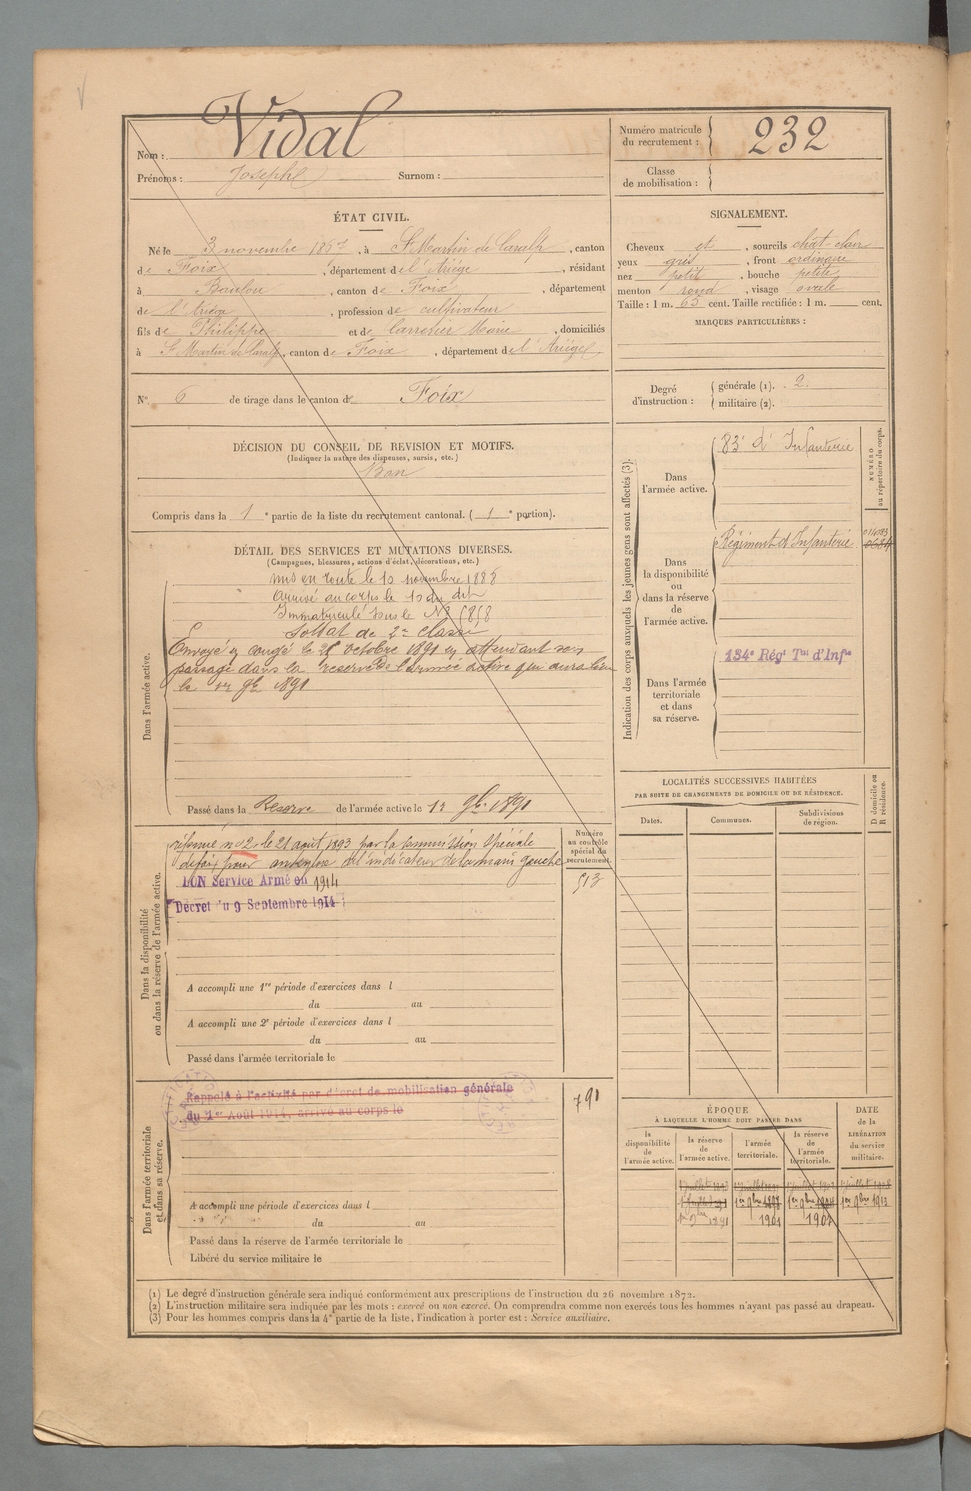 Nom : Vidal
Prénoms : Joseph Surnom :
Numéro matricule du recrutement : 232
Classe de mobilisation :
ÉTAT CIVIL.
Né le 3 novembre 1867, à St Martin de Caralp, canton
de Foix, département de l'Ariége, résidant
à Baulou, canton de Foix, département
de l'Ariége, profession de cultivateur
fils de Philippe et de Marie, domiciliés
à St Martin de Caralp, canton de Foix, département de l'Ariége
N° 6 de tirage dans le canton de Foix
SIGNALEMENT.
Cheveux et, sourcils chât-clair
yeux gris, front ordinaire
nez petit, bouche petite
menton rond, visage ovale
Taille : 1 m. 65 cent. Taille rectifiée : 1 m. cent.
MARQUES PARTICULIÈRES :
Degré d'instruction : générale (1). 2.
militaire (2).
DÉCISION DU CONSEIL DE REVISION ET MOTIFS.
(Indiquer la nature des dispenses, sursis, etc.)
Bon
Compris dans la 1e partie de la liste du recrutement cantonal. ( 1e portion).
DÉTAIL DES SERVICES ET MUTATIONS DIVERSES.
(Campagnes, blessures, actions d'éclat, décorations, etc.)
Dans l'armée active.
mis en route le 12 novembre 1888
Arrivé au corps le 12 du dit
Immatriculé sous le N° 5858
Soldat de 2e classe
Envoyé en congé le octobre 1891 en attendant son
passage dans la réserve de l'armée active qui aura lieu
le 1er 9bre 1891
Passé dans la Réserve de l'armée active le 1er 9bre 1891
Dans la disponibilité ou dans la réserve de l'armée active.
Numéro au contrôle spécial du recrutement.
513
réformé n° 2 le 21 août 1893 par la commission spéciale
de Foix pour ankylose de l'indicateur de la main gauche
BON Service Armé en 1914
Décret du 9 Septembre 1914
A accompli une 1re période d'exercices dans l
du au
A accompli une 2e période d'exercices dans l
du au
Passé dans l'armée territoriale le
Dans l'armée territoriale et dans sa réserve.
791
Rappelé à l'activité par décret de mobilisation générale
du 1er Août 1914, arrivé au corps le
A accompli une période d'exercices dans l
du au
Passé dans la réserve de l'armée territoriale le
Libéré du service militaire le
Indication des corps auxquels les jeunes gens sont affectés (3).
NUMÉRO au répertoire du corps.
Dans l'armée active.
83e d'Infanterie
Dans la disponibilité ou dans la réserve de l'armée active.
Régiment d'Infanterie
Dans l'armée territoriale et dans sa réserve.
134e Régt Tal d'Infie
LOCALITÉS SUCCESSIVES HABITÉES
PAR SUITE DE CHANGEMENTS DE DOMICILE OU DE RÉSIDENCE.
Dates. Communes. Subdivisions de région. D domicile ou R résidence.
ÉPOQUE
À LAQUELLE L'HOMME DOIT PASSER DANS
DATE de la LIBÉRATION du service militaire.
la disponibilité de l'armée active.
la réserve de l'armée active.
l'armée territoriale.
la réserve de l'armée territoriale.
1er 9bre 1897 1er 9bre 1913
1er 9bre 1891 1901 1907
(1) Le degré d'instruction générale sera indiqué conformément aux prescriptions de l'instruction du 26 novembre 1872.
(2) L'instruction militaire sera indiquée par les mots : exercé ou non exercé. On comprendra comme non exercés tous les hommes n'ayant pas passé au drapeau.
(3) Pour les hommes compris dans la 4e partie de la liste, l'indication à porter est : Service auxiliaire.